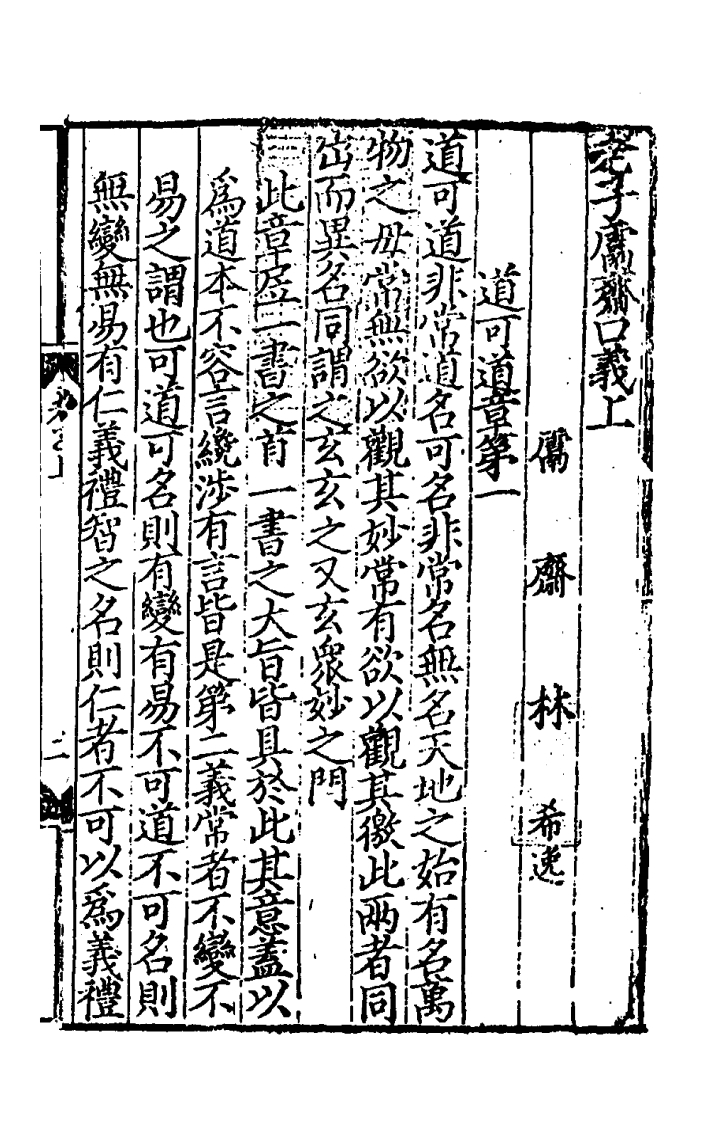 老子鬳齋口義上
鬳齋林希逸
道可道章第一
道可道非常道名可名非常名無名天地之始有名萬
物之母常無欲以觀其妙常有欲以觀其徼此兩者同
出而異名同謂之玄玄之又玄衆妙之門
此章居一書之首一書之大旨皆具於此其意蓋以
爲道本不容言纔涉有言皆是第二義常者不變不
易之謂也可道可名則有變有易不可道不可名則
無變無易有仁義禮智之名則仁者不可以爲義禮
二